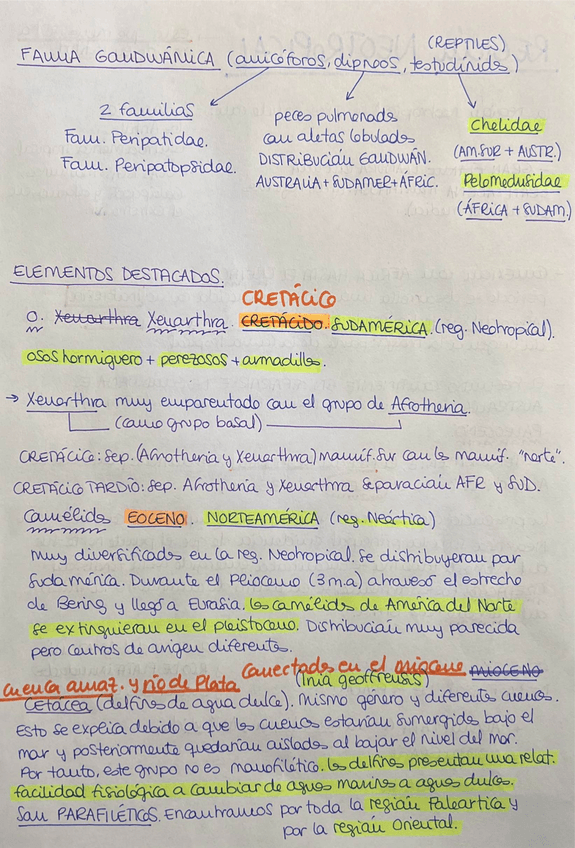 (REPTILES)
FAUNA GONDWÁNICA (onicóforos, dipnoos, testudínidos)
2 familias
Fam. Peripatidae.
Fam. Peripatopsidae.
peces pulmonados
con aletas lobulados
DISTRIBUCIÓN GONDWÁN.
AUSTRALIA + SUDAMER + ÁFRIC.
Chelidae
(AM.SUR + AUSTR.)
Pelomedusidae
(ÁFRICA + SUDAM.)
ELEMENTOS DESTACADOS.
CRETÁCICO
O. Xenarthra Xenarthra. CRETÁCIDO. SUDAMÉRICA. (reg. Neotropical).
osos hormiguero + perezosos + armadillos.
→ Xenarthra muy emparentado con el grupo de Afrotheria.
(como grupo basal)
CRETÁCICO: Sep. (Afrotheria y Xenarthra) mamíf. Sur con los mamíf. "norte".
CRETÁCICO TARDÍO: Sep. Afrotheria y Xenarthra separación AFR y SUD.
Camélidos EOCENO. NORTEAMÉRICA (reg. Neártica)
Muy diversificados en la reg. Neotropical. Se distribuyeron por
Sudamérica. Durante el Plioceno (3 m.a) atravesó el estrecho
de Bering y llegó a Eurasia. Los camélidos de América del Norte
se extinguieron en el pleistoceno. Distribución muy parecida
pero centros de origen diferente.
Conectados en el mioceno MIOCENO
Cuenca amaz. y río de Plata (Inia geoffrensis)
Cetacea (delfines de agua dulce). Mismo género y diferente cuencas.
Esto se explica debido a que las cuencas estarían sumergidas bajo el
mar y posteriormente quedarían aislados al bajar el nivel del mar.
Por tanto, este grupo no es monofilético. Los delfines presentan una relat.
facilidad fisiológica a cambiar de aguas marinas a aguas dulces.
Son PARAFILÉTICOS. Encontramos por toda la región Paleartica y
por la región Oriental.